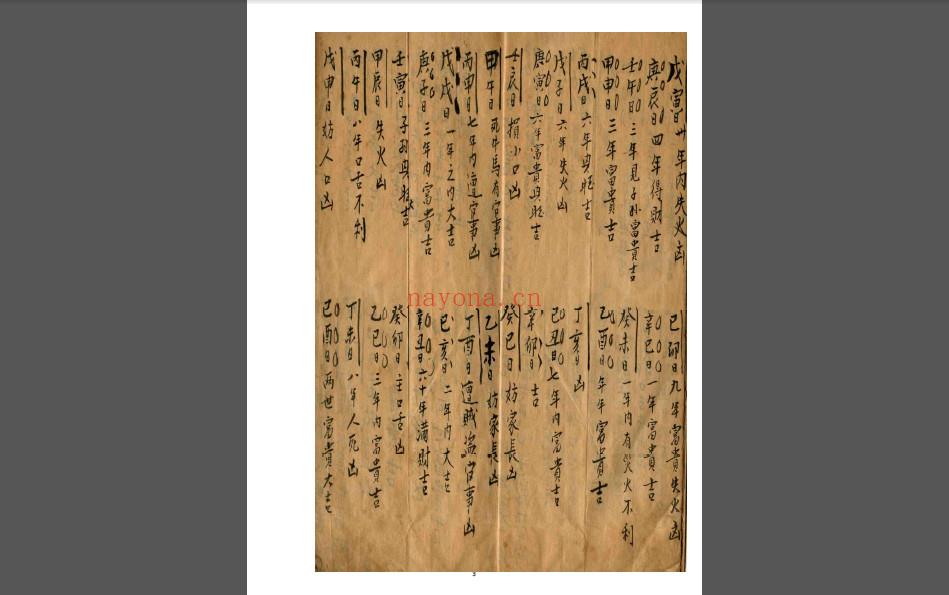 戊寅日卅年内失火凶
己卯日九年富貴失火凶
庚辰日四年得财吉
辛巳日一年富貴吉
壬午日三年見子孙富貴吉
癸未日一年内有災火不利
甲申日三年富貴吉
乙酉日年年富貴吉
丙戌日六年興旺吉
丁亥日凶
戊子日六年失火凶
己丑日七年内富貴吉
庚寅日六年富貴興旺吉
辛卯日吉
壬辰日損小口凶
癸巳日妨家長凶
甲午日死牛馬有官事凶
乙未日妨家長凶
丙申日七年内遭官事凶
丁酉日遭贼盗官事凶
戊戌日一年之内大吉
己亥日二年内大吉
庚子日三年内富貴吉
辛丑日六十年满财吉
壬寅日子孙興旺吉
癸卯日主口舌凶
甲辰日失火凶
乙巳日三年内富貴吉
丙午日八年口舌不利
丁未日八年人死凶
戊申日妨人口凶
己酉日两世富貴大吉
nayona.cn
3